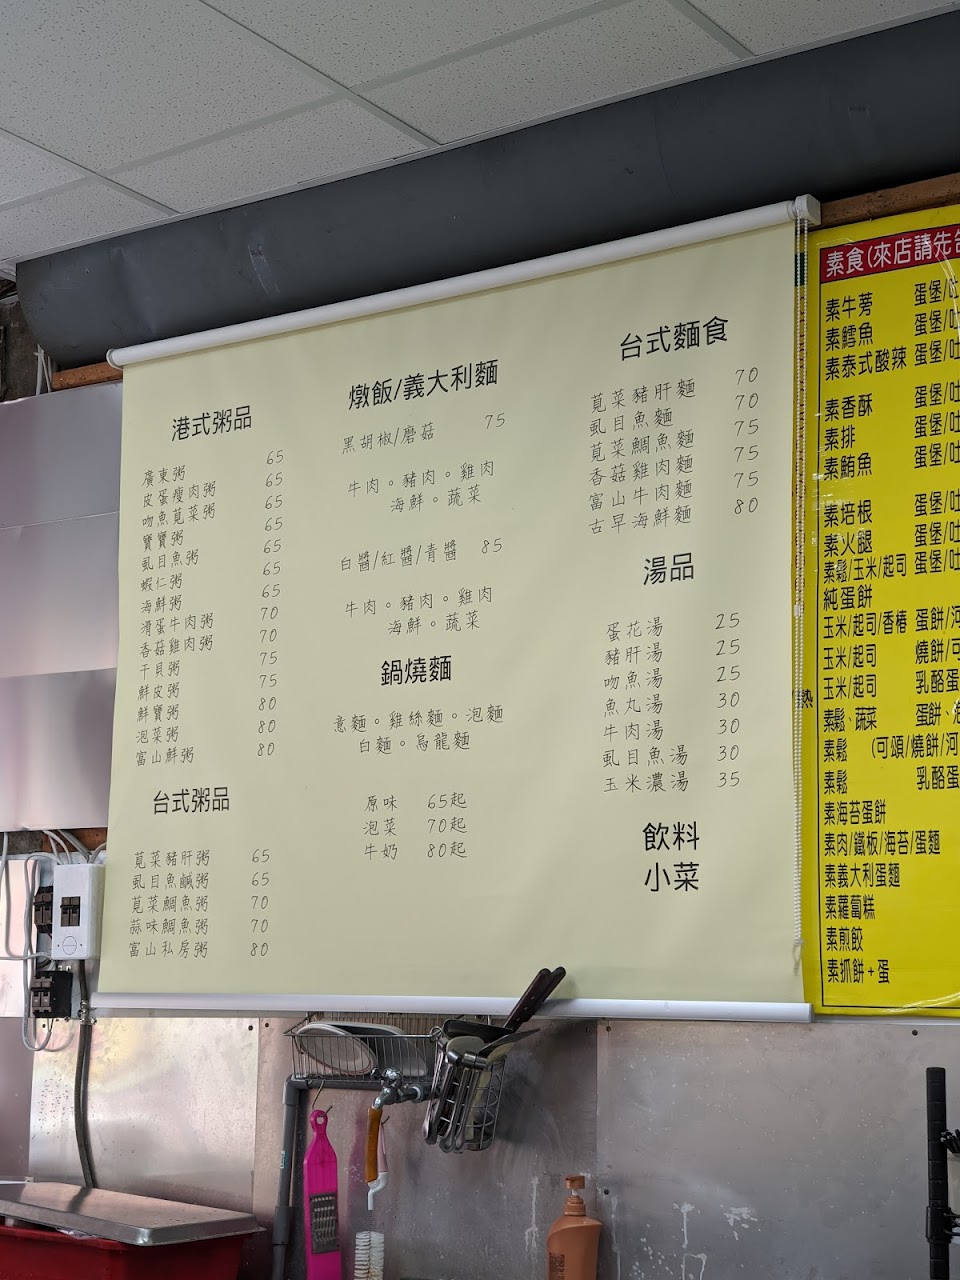 港式粥品
廣東粥 65
皮蛋瘦肉粥 65
吻魚莧菜粥 65
寶寶粥 65
虱目魚粥 65
蝦仁粥 65
海鮮粥 65
滑蛋牛肉粥 70
香菇雞肉粥 70
干貝粥 75
鮮皮粥 75
鮮寶粥 80
泡菜粥 80
富山鮮粥 80
台式粥品
莧菜豬肝粥 65
虱目魚鹹粥 65
莧菜鯛魚粥 70
蒜味鯛魚粥 70
富山私房粥 80
燉飯/義大利麵
黑胡椒/磨菇 75
牛肉。豬肉。雞肉
海鮮。蔬菜
白醬/紅醬/青醬 85
牛肉。豬肉。雞肉
海鮮。蔬菜
鍋燒麵
意麵。雞絲麵。泡麵
白麵。烏龍麵
原味 65起
泡菜 70起
牛奶 80起
台式麵食
莧菜豬肝麵 70
虱目魚麵 70
莧菜鯛魚麵 75
香菇雞肉麵 75
富山牛肉麵 75
古早海鮮麵 80
湯品
蛋花湯 25
豬肝湯 25
吻魚湯 25
魚丸湯 30
牛肉湯 30
虱目魚湯 30
玉米濃湯 35
飲料
小菜
素食(來店請先告
素牛蒡 蛋堡/吐
素鱈魚 蛋堡/吐
素泰式酸辣 蛋堡/吐
素香酥 蛋堡/吐
素排 蛋堡/吐
素鮪魚 蛋堡/吐
素培根 蛋堡/吐
素火腿 蛋堡/吐
素鬆/玉米/起司 蛋堡/吐
純蛋餅
玉米/起司/香椿 蛋餅/河
玉米/起司 燒餅/可
玉米/起司 乳酪蛋
素鬆、蔬菜 蛋餅、
素鬆 (可頌/燒餅/河
素鬆 乳酪蛋
素海苔蛋餅
素肉/鐵板/海苔/蛋麵
素義大利蛋麵
素蘿蔔糕
素煎餃
素抓餅+蛋
熱